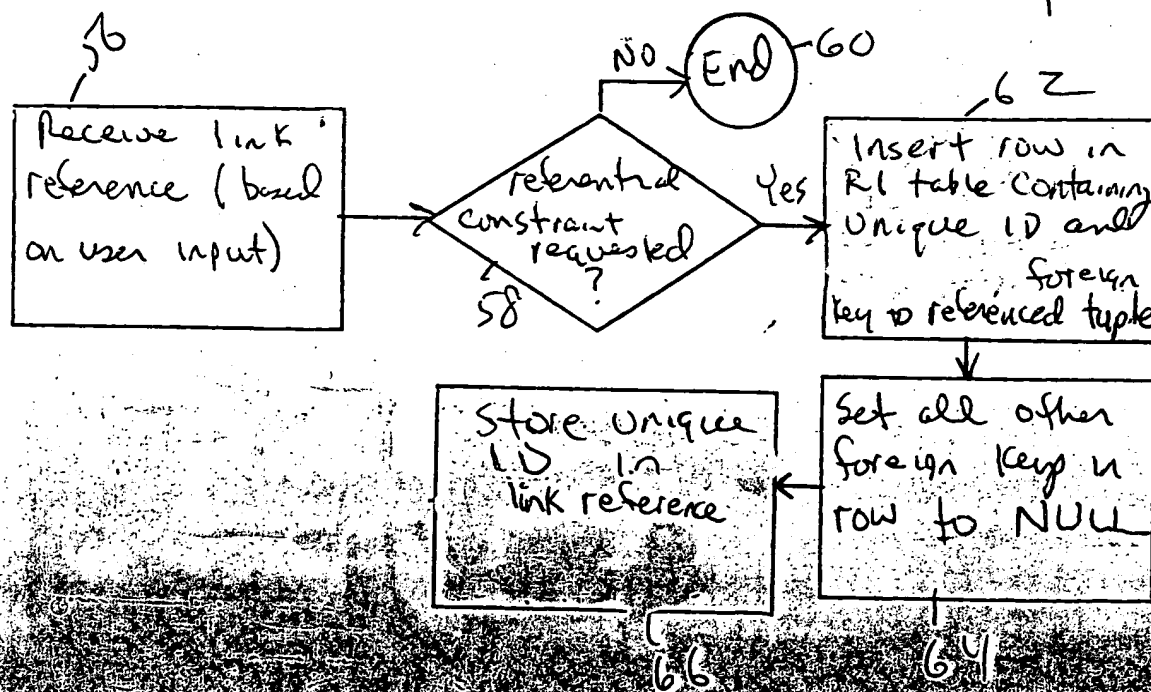 56
Receive link
reference (based
on user input)
referential
constraint
requested
?
58
NO
End
60
Yes
62
Insert row in
RI table containing
Unique ID and
foreign
key to referenced tuple
Set all other
foreign keys in
row to NULL
64
Store unique
ID in
link reference
66